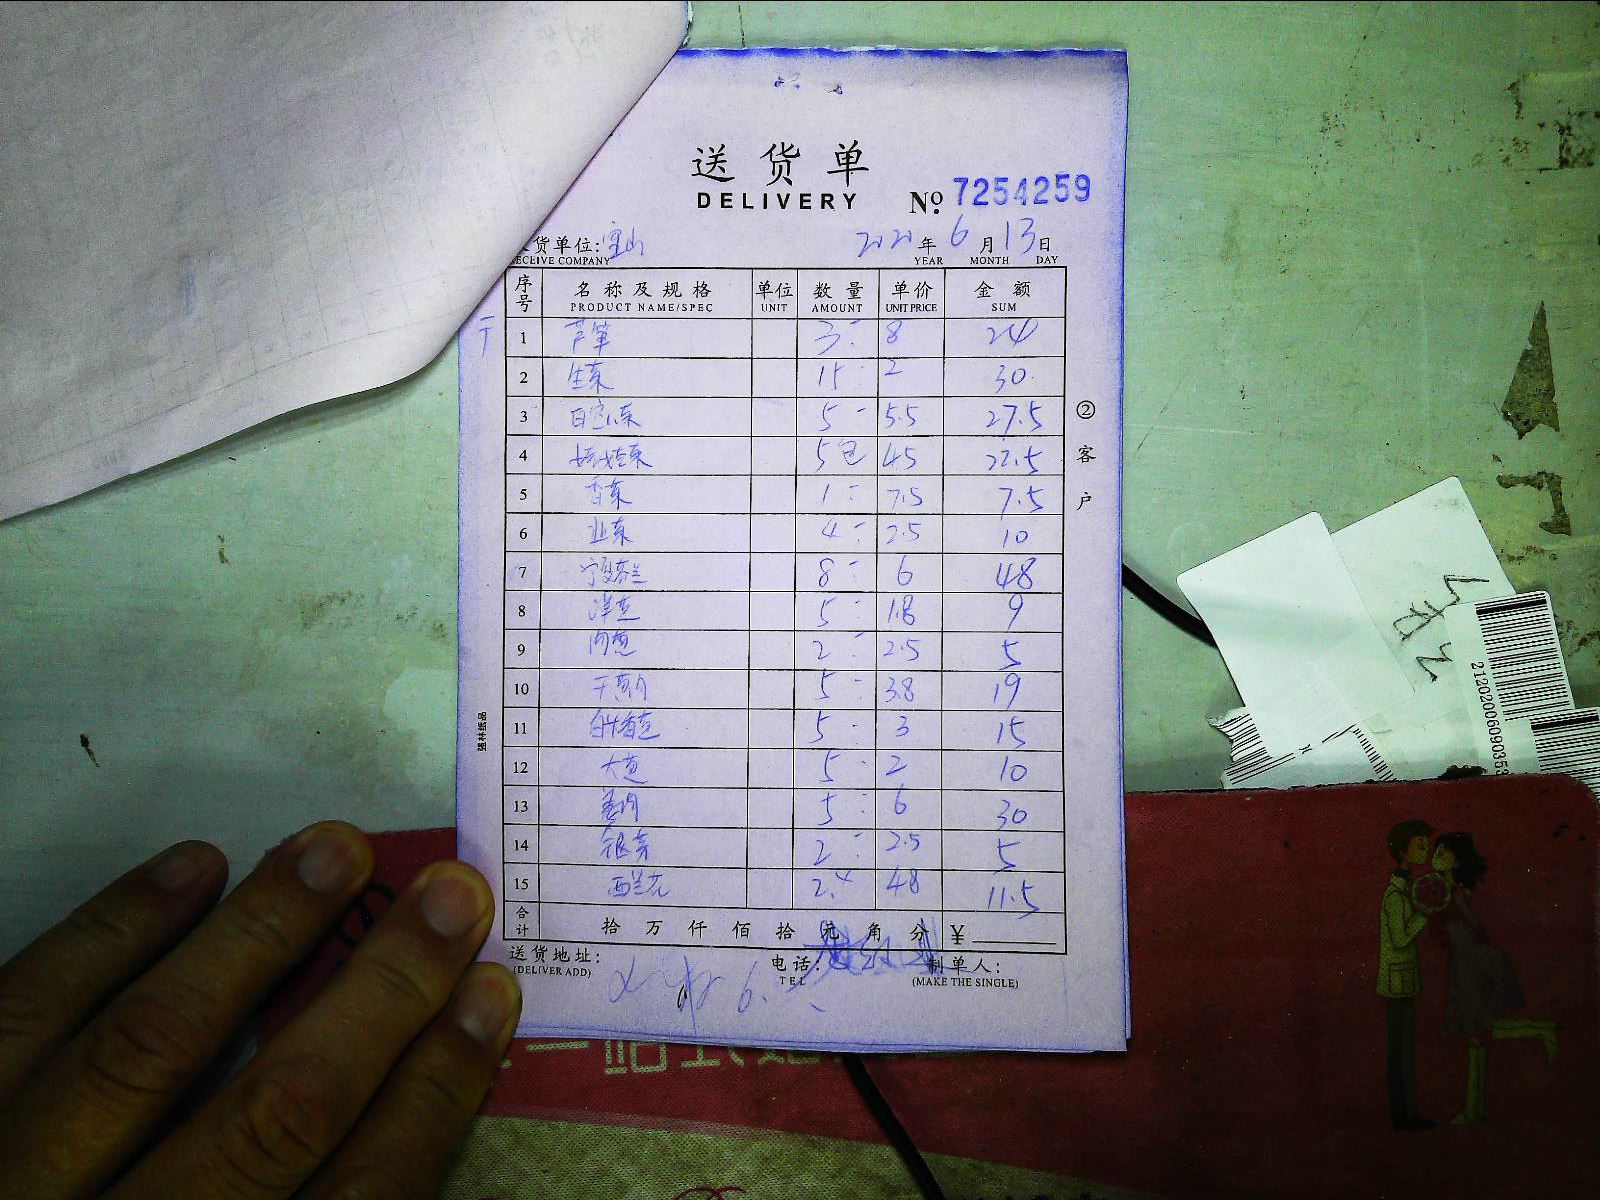 送货单
DELIVERY
No. 7254259
货单位:宝山 2020年6月13日
RECEIVE COMPANY YEAR MONTH DAY
序号 名称及规格 单位 数量 单价 金额
PRODUCT NAME/SPEC UNIT AMOUNT UNIT PRICE SUM
1 芦笋 3: 8 24
2 生菜 15: 2 30
3 5- 5.5 27.5
4 娃娃菜 5包 45 22.5
5 香菜 1: 7.5 7.5
6 韭菜 4: 2.5 10
7 8: 6 48
8 洋葱 5: 1.8 9
9 2: 2.5 5
10 5: 3.8 19
11 5: 3 15
12 大葱 5: 2 10
13 姜肉 5: 6 30
14 银芽 2: 2.5 5
15 西兰花 2.4 48 11.5
合计 拾万仟佰拾元角分 ¥
送货地址: 电话: 制单人:
(DELIVER ADD) TEL (MAKE THE SINGLE)
②客户
强林纸品